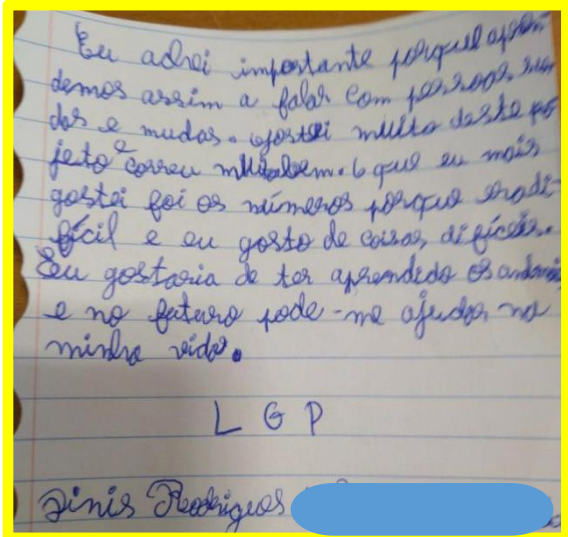 Eu achei importante porque apren
demos assim a falar com pessoas sur
das e mudas. Gostei muito deste pro
jeto e correu muito bem. O que eu mais
gostei foi os números porque era di
fícil e eu gosto de coisas difíceis.
Eu gostaria de ter aprendido os animais
e no futuro pode-me ajudar na
minha vida.
L G P
Dinis Rodrigues